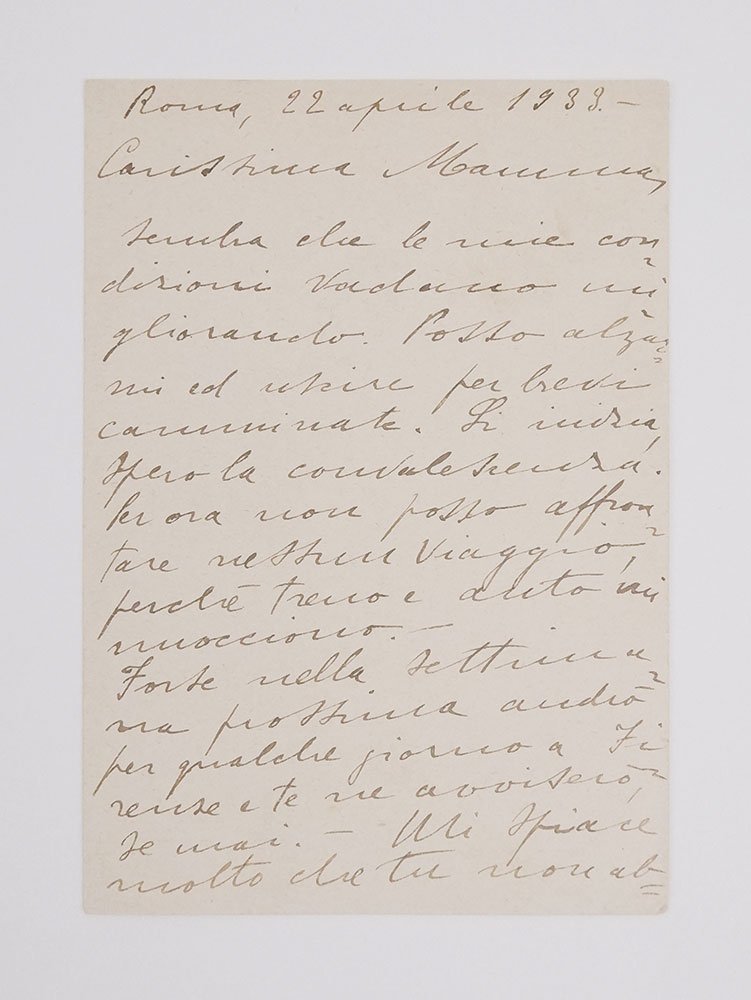 Roma, 22 aprile 1933.—
Carissima Mamma,
sembra che le mie con=
dizioni vadano mi=
gliorando. Posso alzar=
mi ed uscire per brevi
camminate. Si inizia,
spero la convalescenza.
Per ora non posso affron=
tare nessun viaggio,
perchè treno e auto mi
nuocciono.—
Forse nella settima=
na prossima andrò
per qualche giorno a Fi=
renze e te ne avviserò,
se mai.— Mi spiace
molto che tu non ab=